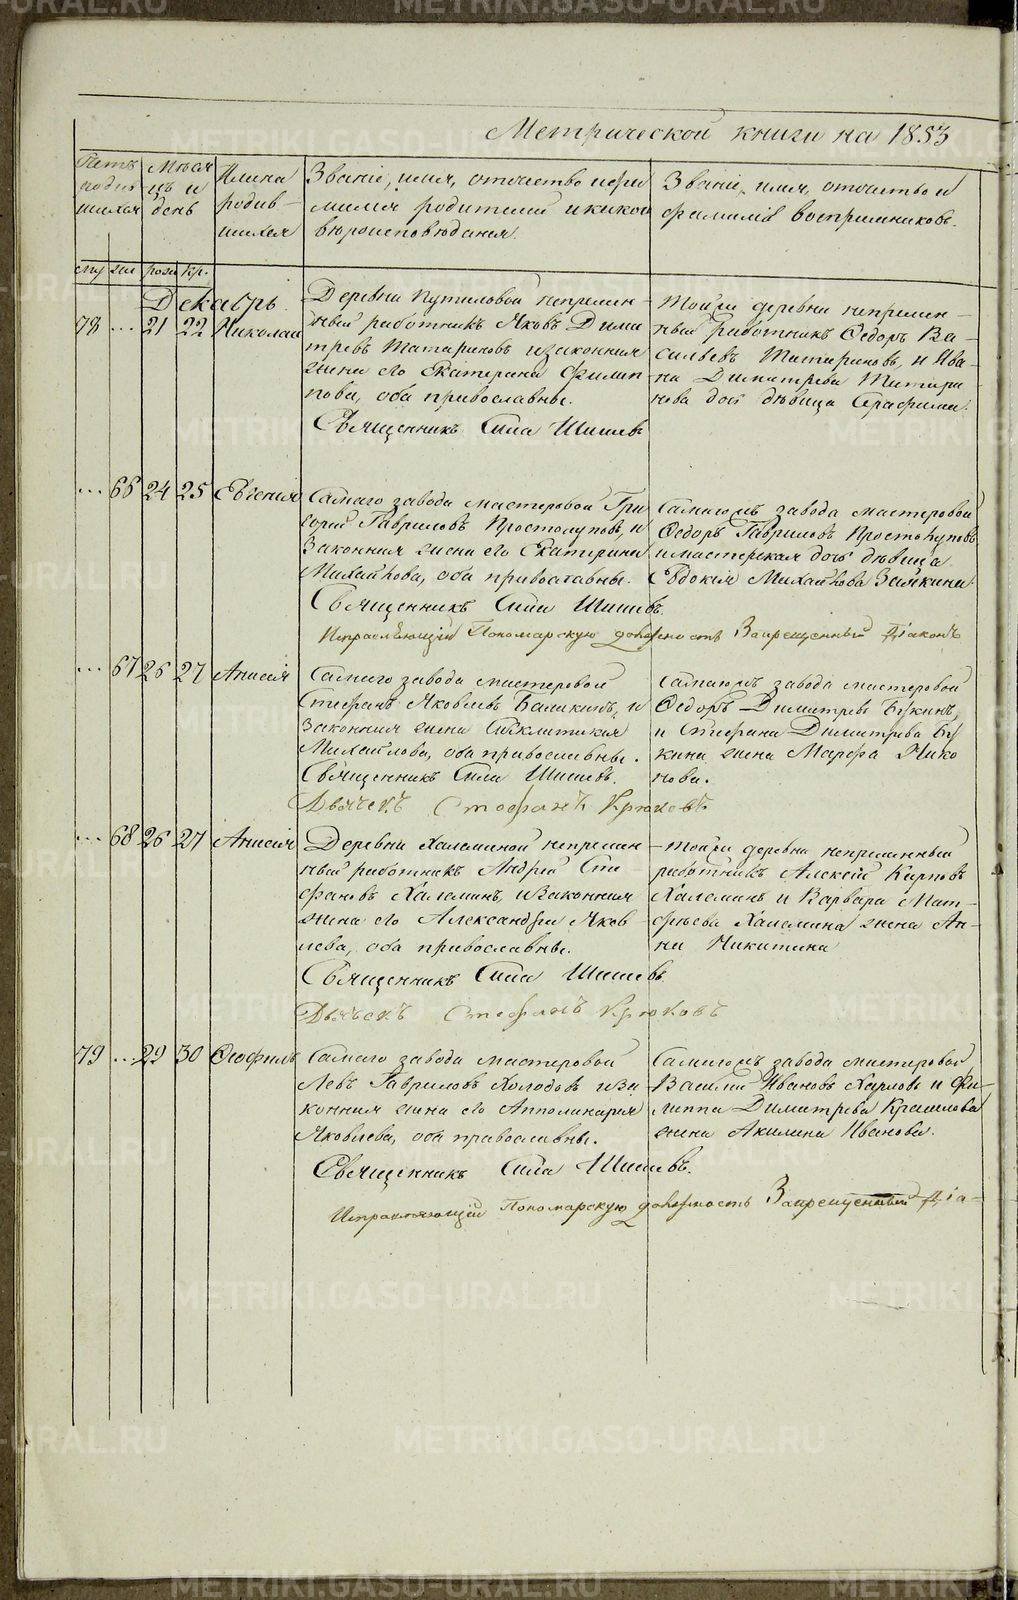 Метрической книги на 1853
Счетъ родив шихся
Мѣся цъ и день
Имена родив– шихся
Званіе, имя, отчество и фа
милія родителей и какой
вѣроисповѣданія.
Званіе, имя, отчество и
фамилія воспріемниковъ.
му же рожд кр.
Декабрь.
78 ... 21 22 Николай
Деревни Путиловой непремен–
ный работникъ Яковъ Дими
тревъ Татариновъ и законная
жена его Екатерина Филип
пова, оба православные.
Священникъ Сила Шишевъ
Той же деревни непремен–
ный работникъ Ѳедоръ Ва–
сильевъ Татариновъ, и Ива–
на Димитрева Татари
нова дочь дѣвица Серафима.
... 66 24 25 Евгенія
Самаго завода мастеровой Гри
горій Гавриловъ Простолуповъ, и
Законная жена его Екатерина
Михайлова, оба православны.
Священникъ Сила Шишевъ.
Исправляющій Пономарскую должность Запрещенный Діаконъ
Самагожъ завода мастеровой
Ѳедоръ Гавриловъ Простолуповъ
и мастерская дочь дѣвица
Евдокія Михайлова Замкина
... 67 26 27 Анисія
Самаго завода мастеровой
Стефанъ Яковлевъ Баликинъ, и
законная жена Сѵнклитикія
Михайлова, оба православны.
Священникъ Сила Шишевъ.
Дьячекъ Стефанъ Крюковъ
Самагожъ завода мастеровой
Ѳедоръ Димитревъ Букинъ,
и Стефана Димитрева Бу
кина жена Марфа Нико
нова.
... 68 26 27 Анисія
Деревни Халеминой непремен–
ный работникъ Андрей Сте
фановъ Халеминъ, и законная
жена его Александра Яков
лева, оба православны.
Священникъ Сила Шишевъ.
Дьячекъ Стефанъ Крюковъ
той же деревни непременный
работникъ Алексѣй Карповъ
Халеминъ и Варвара Мат–
фѣева Халемина жена Ан–
на Никитина
79 ... 29 30 Ѳеофилъ
Самаго завода мастеровой
Левъ Гавриловъ Холодовъ и за
конная жена его Апполинарія
Яковлева, оба православны.
Священникъ Сила Шишевъ.
Исправляющій Пономарскую должность Запрещенный Діа–
Самагожъ завода мастеровой
Василій Ивановъ Харловъ и Фи–
липпа Димитрева Крашлова
жена Акилина Иванова.
METRIKI.GASO-URAL.RU